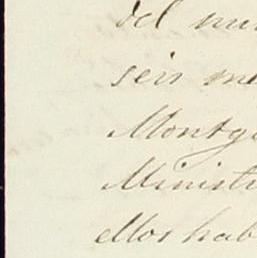 del mi
seis me
Montgo
Ministr
ellos hab